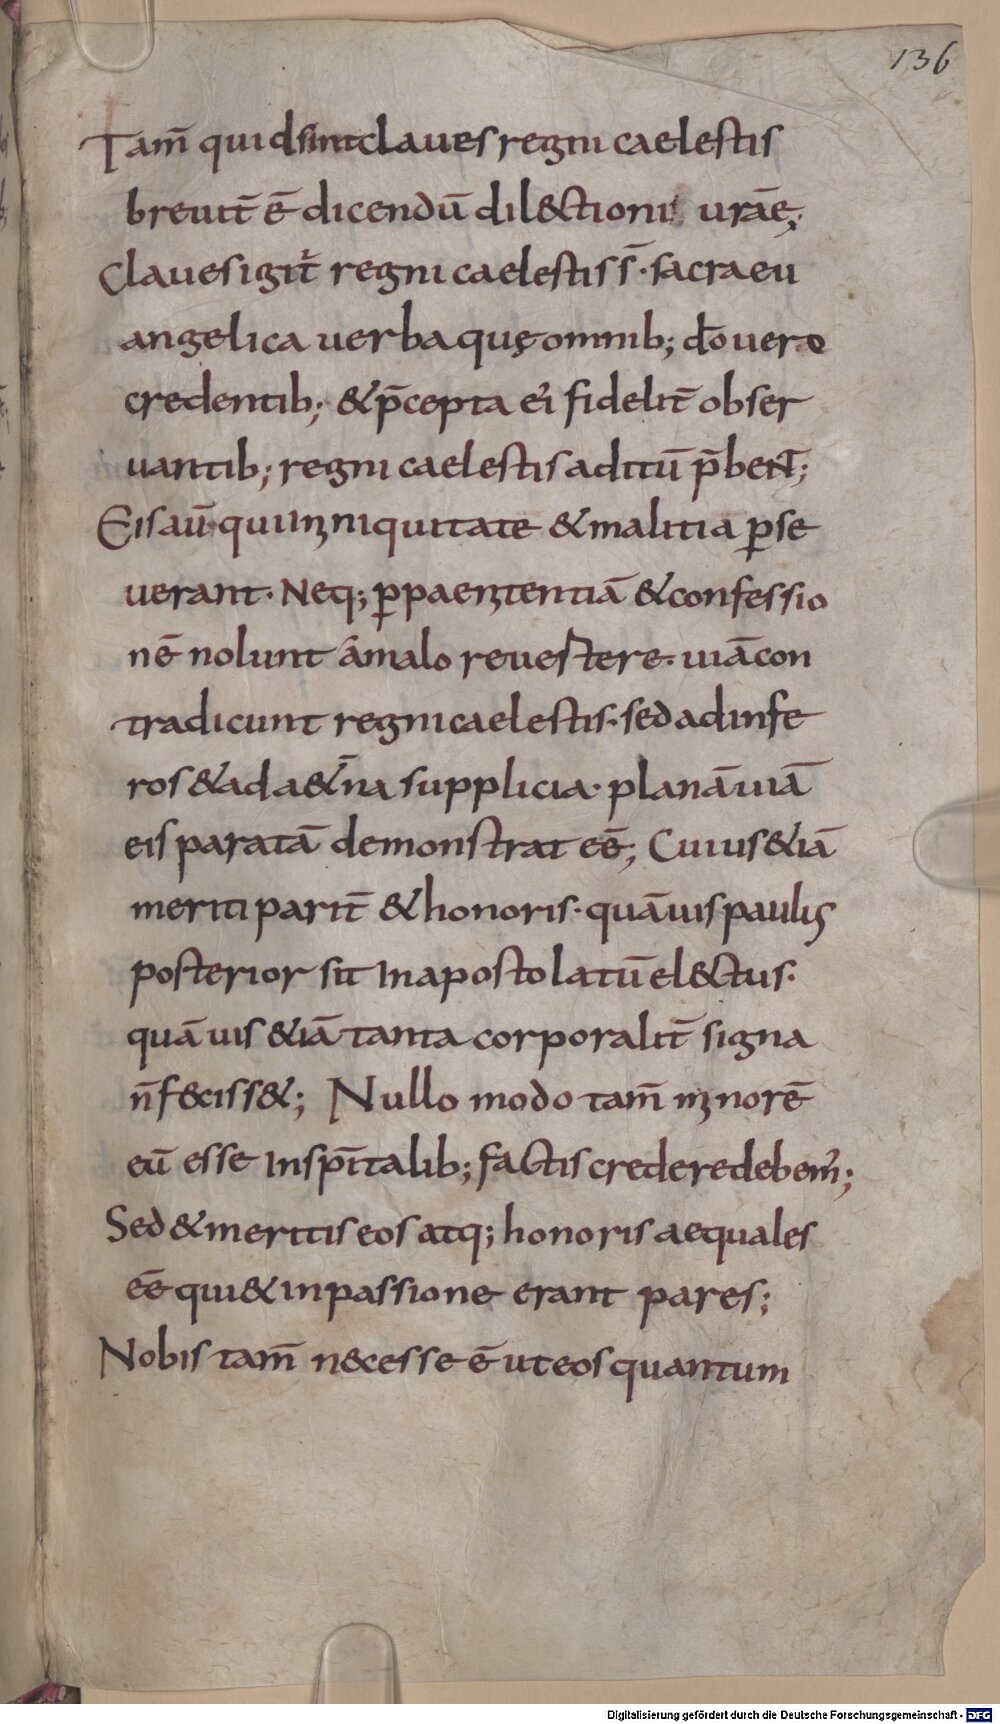 136
Tam̄ quid sint claues regni caelestis
breuit̄ ē dicendū dil&ctioni urāe;
Claues igit̄ regni caelestis s̄· sacra eu
angelica uerba quę omnib; do uere
credentib; & p̄cepta ei fidelit̄ obser
uantib; regni caelestis aditū p̄beNT̄;
Eis aū qui in iniquitate & malitia ꝑse
uerant· Neq; ꝑ paenitentiā & confessio
nē nolunt á malo reuestere· uiā con
tradicunt regni caelestis· sed ad infe
ros & ad a&̄na supplicia· planā uiā
eis paratā demonstrat eē; Cuius &iā
meriti parit̄ & honoris· quāuis paulus
posterior sit In apostolatū el&ctus·
quāuis &iā tanta corporalit̄ signa
n̄ f&ciss&; Nullo modo tam̄ minorē
eū esse In sp̄italib; factis credere debem';
Sed & meritis eos atq; honoris aequales
eē qui & in passione erant pares;
Nobis tam̄ n&cesse ē ut eos quantum
Digitalisierung gefördert durch die Deutsche Forschungsgemeinschaft - DFG